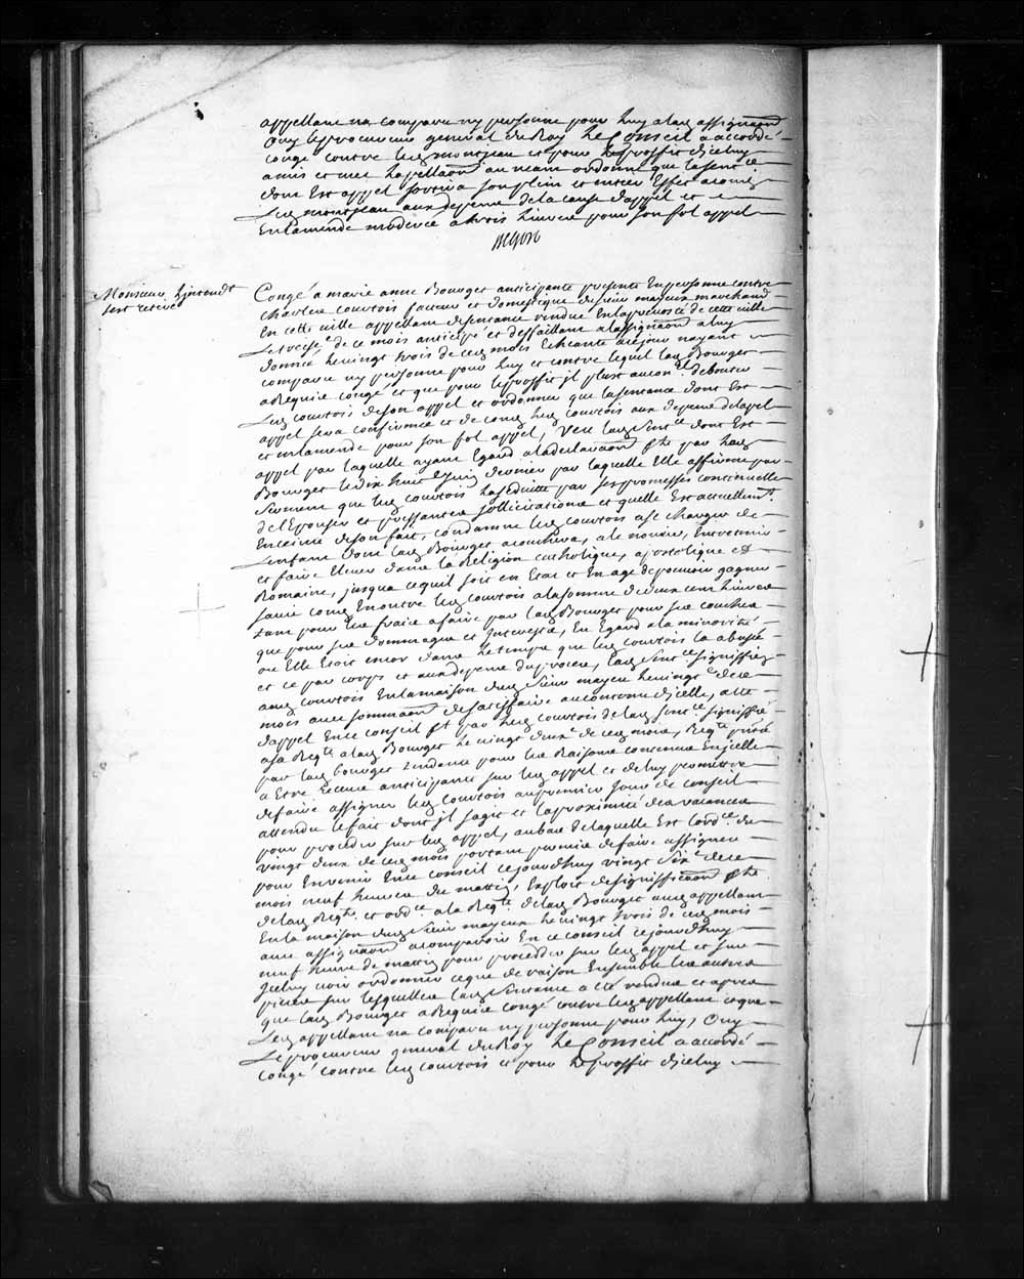 appellant na comparu ny personne pour luy a lad assignaõn
Ouy le procureur general du Roy Le Conseil a accordé
congé contre led montjean et pour le proffit dicelluy
a mis et met lapellaõn au neant ordonne que la sentce
dont Est appel sortira son plein et entier Effet
Led montjean aux depens de la cause dappel et
En lamende moderée a trois Livres pour son fol appel
Begon
Monsieur Lintendt
sest retiré
Congé a marie anne Bourget anticipante presente En personne contre
charles courtois faueur et domestique du sieur mayeux marchand
En cette ville appellant de sentence rendue En la prevosté de cette ville
Le treise de ce mois anticipé et deffaillant a lassignaõn a luy
donnée le vingt trois de ced mois Echeante a ce jour nayant
comparu ny personne pour luy et contre lequel lad Bourget
a Requis congé et que pour le proffit jl plust au conel debouter
Led courtois de son appel et ordonner que la sentence dont Est
appel sera confirmée et de cond led courtois aux depens dapel
et en lamende pour son fol appel, Veu lad Sentce dont Est
appel par laquelle ayant Egard a la declaraõn fte par lad
Bourget le dix huit Juin dernier par laquelle Elle affirme par
Serment que led courtois la seduitte par ses promesses continuelles
de l'Epouser et pressantes sollicitations et quelle Est actuellemt
Enceinte de son fait, condamne led courtois a se charger de
Lenfant dont lad Bourget acouchera, a le nourir, Entretenir
et faire Elever dans la Religion catholique, apostolique et
Romaine, jusqua ce quil soit en Etat et En age de pouvoir gagner
sa vie comme En outre led courtois a la somme de deux cent Livres
tant pour les fraix a faire par lad Bourget pour ses couches
que pour ses dommages et Interests, En Egard a la minorité
ou Elle Etoit encor dans le temps que led courtois la abusée
et ce par corps et aux depens du proces, lad sentce signiffiée
aud courtois En la maison dud sieur mayeu le vingt de ce
mois avec sommaõn de satisfaire au contenu dicelle, acte
dappel En ce conseil ft par led courtois de lad sentce signiffié
a sa Reqte a lad Bourget le vingt deuxe de ced mois, Reqte prtée
par lad bourget tendante pour les Raisons contenues En jcelle
a Estre Receue anticipante sur led appel et de luy permettre
de faire assigner led courtois au premier jour de conseil
attendu le fait dont jl sagit et la proximité des vacances
pour proceder sur led appel, au bas de laquelle Est lordce du
vingt deux de ced mois portant permis de faire assigner
pour En venir En ce conseil cejourdhuy vingt Sixe de ce
mois neuf heures du mattin, Exploit de signiffication fte
de lad Reqte et ordce a la Reqte de lad Bourget aud appellant
En la maison dud Sieur mayeux le vingt trois de ced mois
avec assignaõn a comparoir En ce conseil cejourdhuy
neuf heures du mattin pour proceder sur led appel et sur
jcelluy voir ordonner ce que de raison Ensemble les autres
pieces sur lesquelles lad Sentence a été rendue et apres
que lad Bourget a Requis congé contre led appellant et que
Led appellant na comparu ny personne pour luy, Ouy
Le procureur general du Roy Le Conseil a accordé
Congé contre led courtois et pour le proffit dicelluy